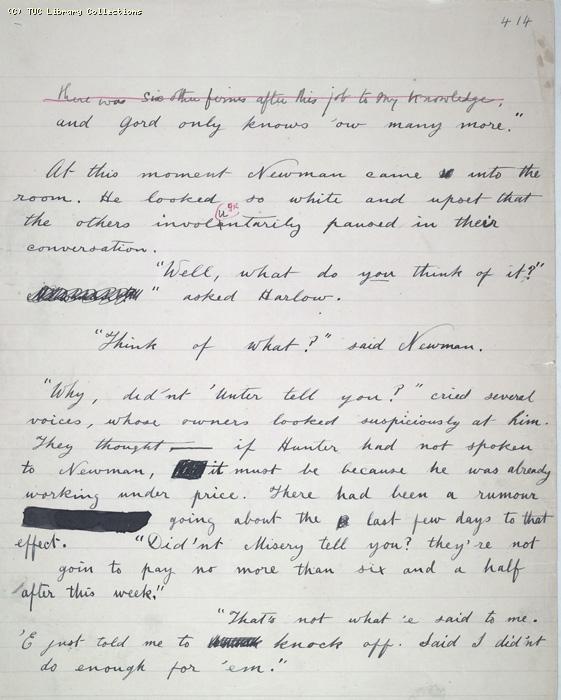 (C) TUC Library Collections
414
there was six other firms after this job to my knowledge,
and Gord only knows 'ow many more."
At this moment Newman came into the
room. He looked so white and upset that
the others involuntarily paused in their
conversation.
"Well, what do you think of it?"
" asked Harlow.
"Think of what?" said Newman.
"Why, did'nt 'Unter tell you?" cried several
voices, whose owners looked suspiciously at him.
They thought — if Hunter had not spoken
to Newman, it must be because he was already
working under price. There had been a rumour
going about the last few days to that
effect. "Did'nt Misery tell you? they're not
goin to pay no more than six and a half
after this week."
"That's not what 'e said to me.
'E just told me to knock off. Said I did'nt
do enough for 'em."